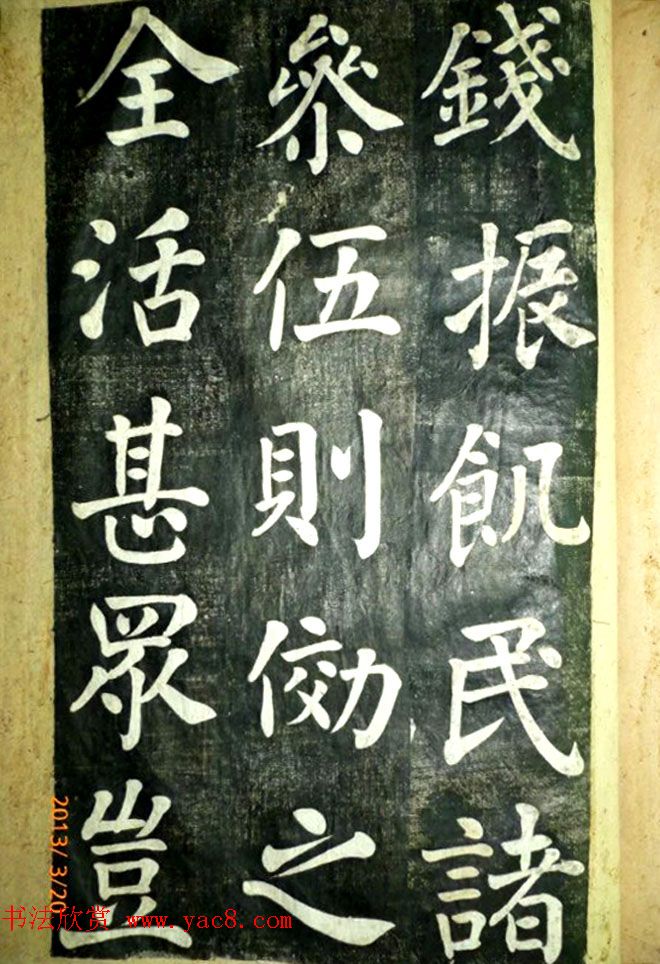 錢振飢民諸
叅伍則効之
全活甚眾豈
2013/ 3/20
书法欣赏 www.yac8.com